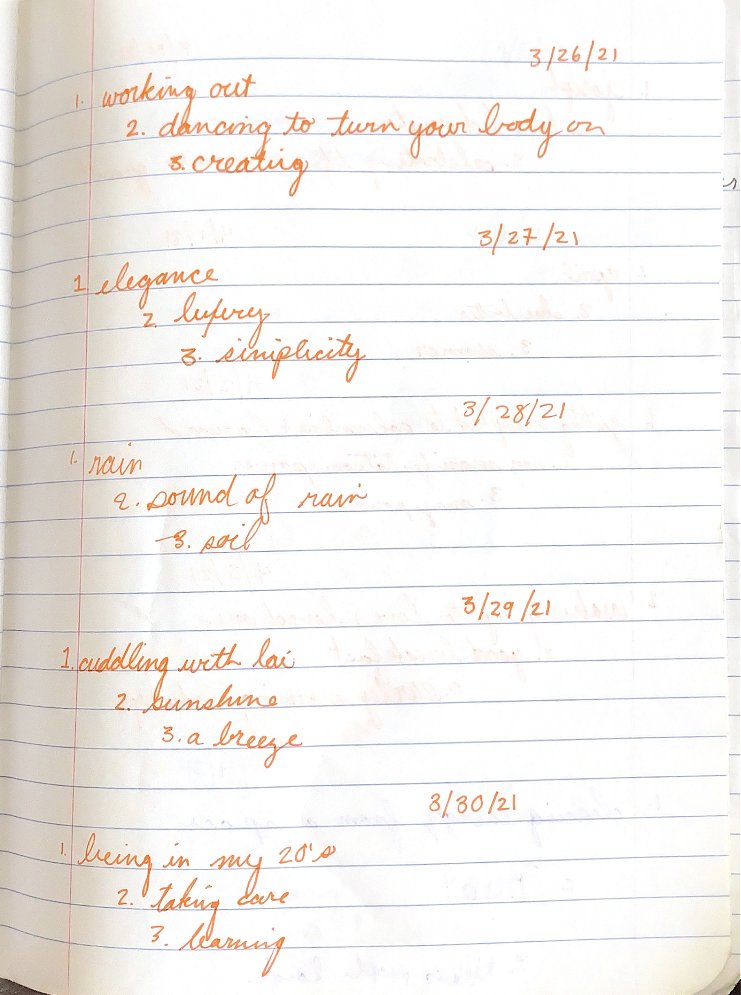 3/26/21
1. working out
2. dancing to turn your body on
3. creating
3/27/21
1 elegance
2. luxury
3. simplicity
3/28/21
1. rain
2. sound of rain
3. soil
3/29/21
1. cuddling with lai
2. sunshine
3. a breeze
3/30/21
1. being in my 20's
2. taking care
3. learning